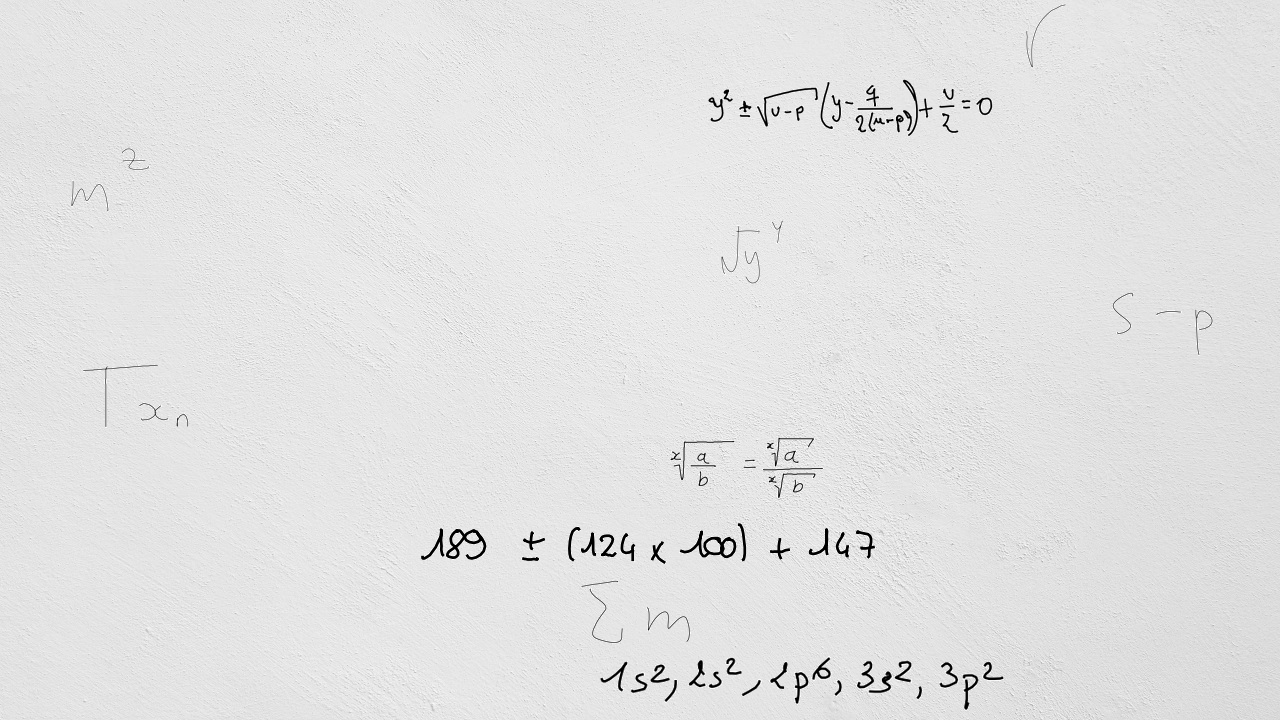 √
y² ± √(v-p) (y - q/2(u-p)) + v/2 = 0
m^z
√y^y
s - p
T x_n
ˣ√(a/b) = ˣ√a / ˣ√b
189 ± (124 x 100) + 147
Σ m
1s², 2s², 2p⁶, 3s², 3p²